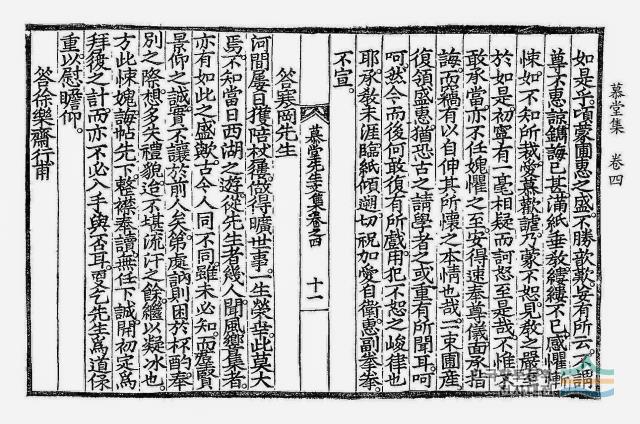 慕堂集 卷四
如是乎頃蒙圃惠之盛不勝歆歎妄有所云不謂
尊丈惠諒鐫誨已甚滿紙垂敎縷縷不已感懼
悚如不知所裁愛慕歡謔乃蒙不恕見敎之嚴
於如是初寧有一毫相疑而訶怒至是哉不惟
敢承當亦不任愧懼之至安得速奉尊儀面承指
誨而竊有以自伸其所懷之本情也哉二束圃産
復領盛惠猶恐古之請學者之或重有所聞耳呵
呵然今而後何敢復有所戲用犯不恕之峻律也
耶承敎未涯臨紙傾遡切祝加愛自衛惠副拳拳
不宣
慕堂先生文集卷之四 十一
答寒岡先生
河間屢日獲陪杖屨做得曠世事一生榮幸此莫大
焉不知當日西湖之遊從先生者幾人聞風嚮集者
亦有如此之盛歟古今人同不同雖未必知而尊賢
景仰之誠實不讓於前人矣弟處訥則困於杯酌奉
別之際想多失禮貌迨不堪流汗之餘繼以凝冰也
方此悚媿誨帖先下整襟奉讀無任下誠開初定爲
拜後之計而亦不必入手與否耳更乞先生爲道保
重以慰瞻仰
答徐樂齋行甫